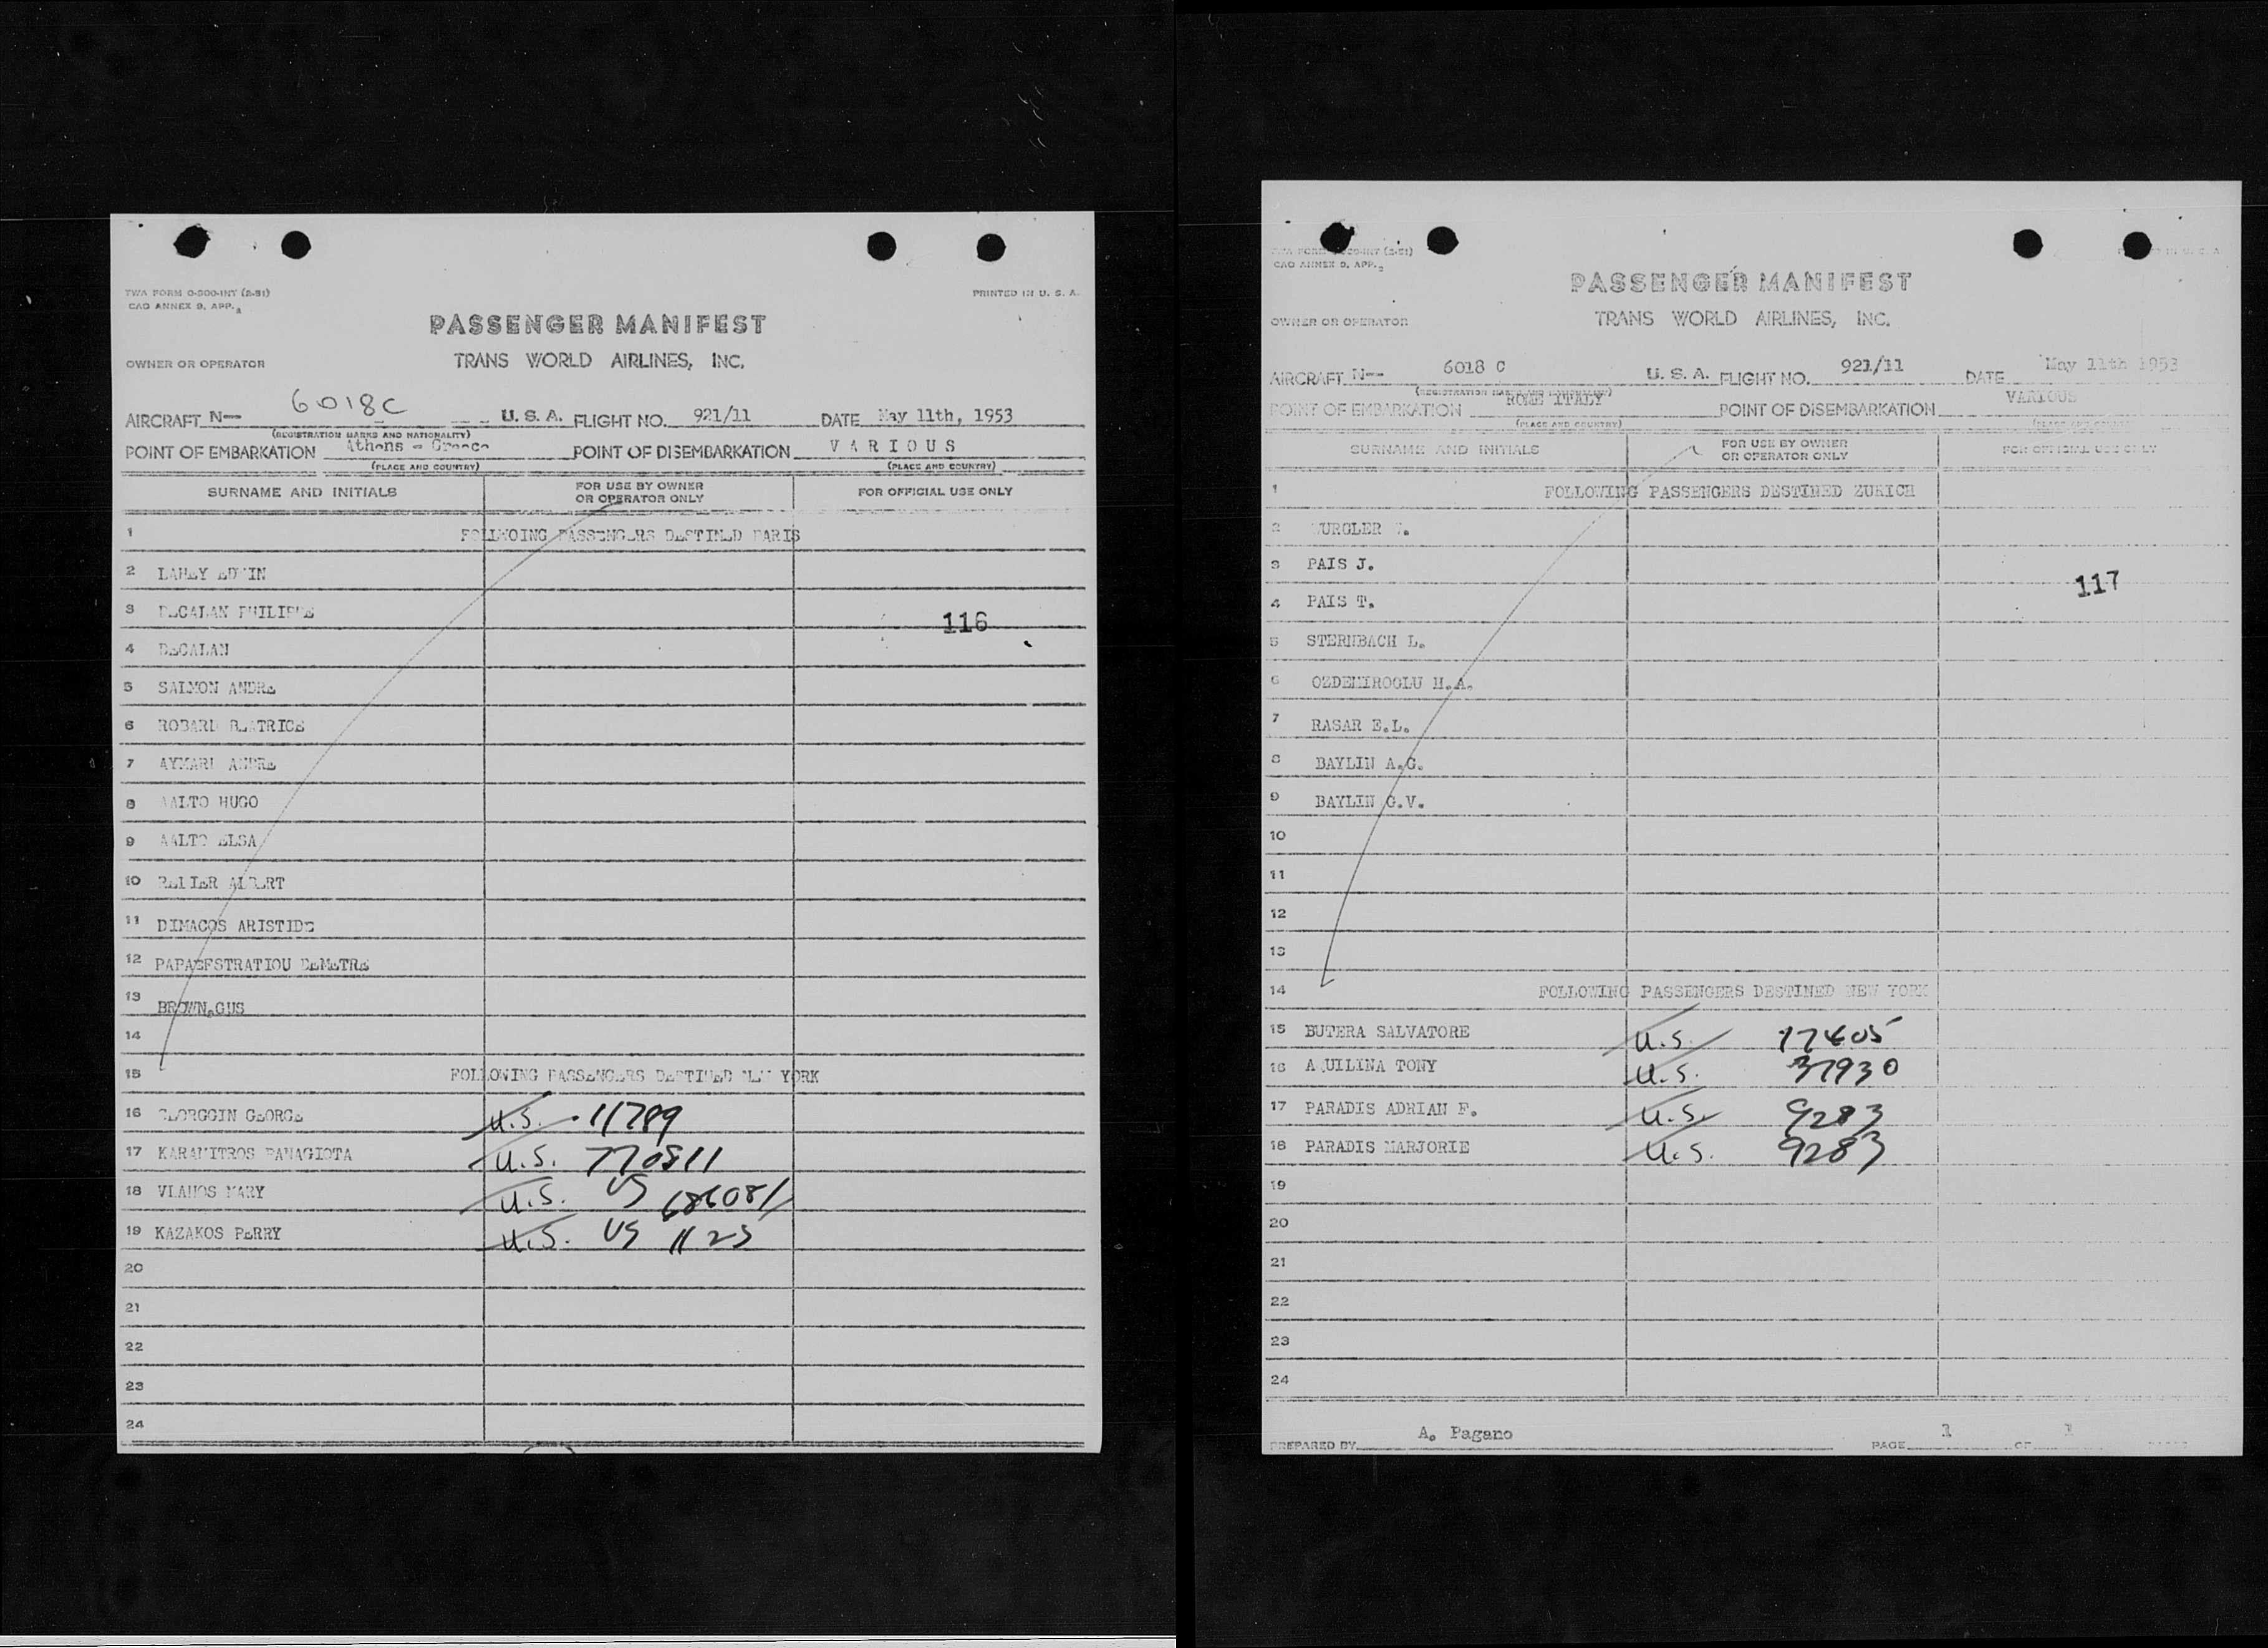 TWA FORM O-300-INT (2-51)
CAO ANNEX 9, APP. 2
PRINTED IN U. S. A.
PASSENGER MANIFEST
OWNER OR OPERATOR TRANS WORLD AIRLINES, INC.
AIRCRAFT N-- 6018C U. S. A. FLIGHT NO. 921/11 DATE May 11th, 1953
(REGISTRATION MARKS AND NATIONALITY)
POINT OF EMBARKATION Athens - Greece POINT OF DISEMBARKATION VARIOUS
(PLACE AND COUNTRY) (PLACE AND COUNTRY)
SURNAME AND INITIALS FOR USE BY OWNER OR OPERATOR ONLY FOR OFFICIAL USE ONLY
1 FOLLWOING PASSENGERS DESTINED PARIS
2 LAHEY EDWIN
3 DECALAN PHILIPPE 116
4 DECALAN
5 SALMON ANDRE
6 BEATRICE
7 ANDRE
8 AALTO HUGO
9 AALTO ELSA
10 ALBERT
11 DIMACOS ARISTIDE
12 PAPAEFSTRATIOU DEMETRE
13 BROWN.GUS
14
15 FOLLOWING PASSENGERS DESTINED NEW YORK
16 GEORGE U.S. 11789
17 KARAMITROS PANAGIOTA U.S. 770811
18 VLAHOS MARY U.S. US 686081
19 KAZAKOS PERRY U.S. US 1123
20
21
22
23
24
CAO ANNEX 9, APP. 2
PASSENGER MANIFEST
OWNER OR OPERATOR TRANS WORLD AIRLINES, INC.
AIRCRAFT N-- 6018 C U. S. A. FLIGHT NO. 921/11 DATE May 11th 1953
(REGISTRATION MARKS AND NATIONALITY)
POINT OF EMBARKATION ROME ITALY POINT OF DISEMBARKATION VARIOUS
(PLACE AND COUNTRY) (PLACE AND COUNTRY)
SURNAME AND INITIALS FOR USE BY OWNER OR OPERATOR ONLY FOR OFFICIAL USE ONLY
1 FOLLOWING PASSENGERS DESTINED ZURICH
2
3 PAIS J.
4 PAIS T. 117
5 STERNBACH L.
6 OZDEMIROGLU H.A.
7 RASAR E.L.
8 BAYLIN A.G.
9 BAYLIN G.V.
10
11
12
13
14 FOLLOWING PASSENGERS DESTINED NEW YORK
15 BUTERA SALVATORE U.S. 17405
16 A UILINA TONY U.S. 37930
17 PARADIS ADRIAN F. U.S. 9283
18 PARADIS MARJORIE U.S. 9283
19
20
21
22
23
24
PREPARED BY A. Pagano PAGE 1 OF 1